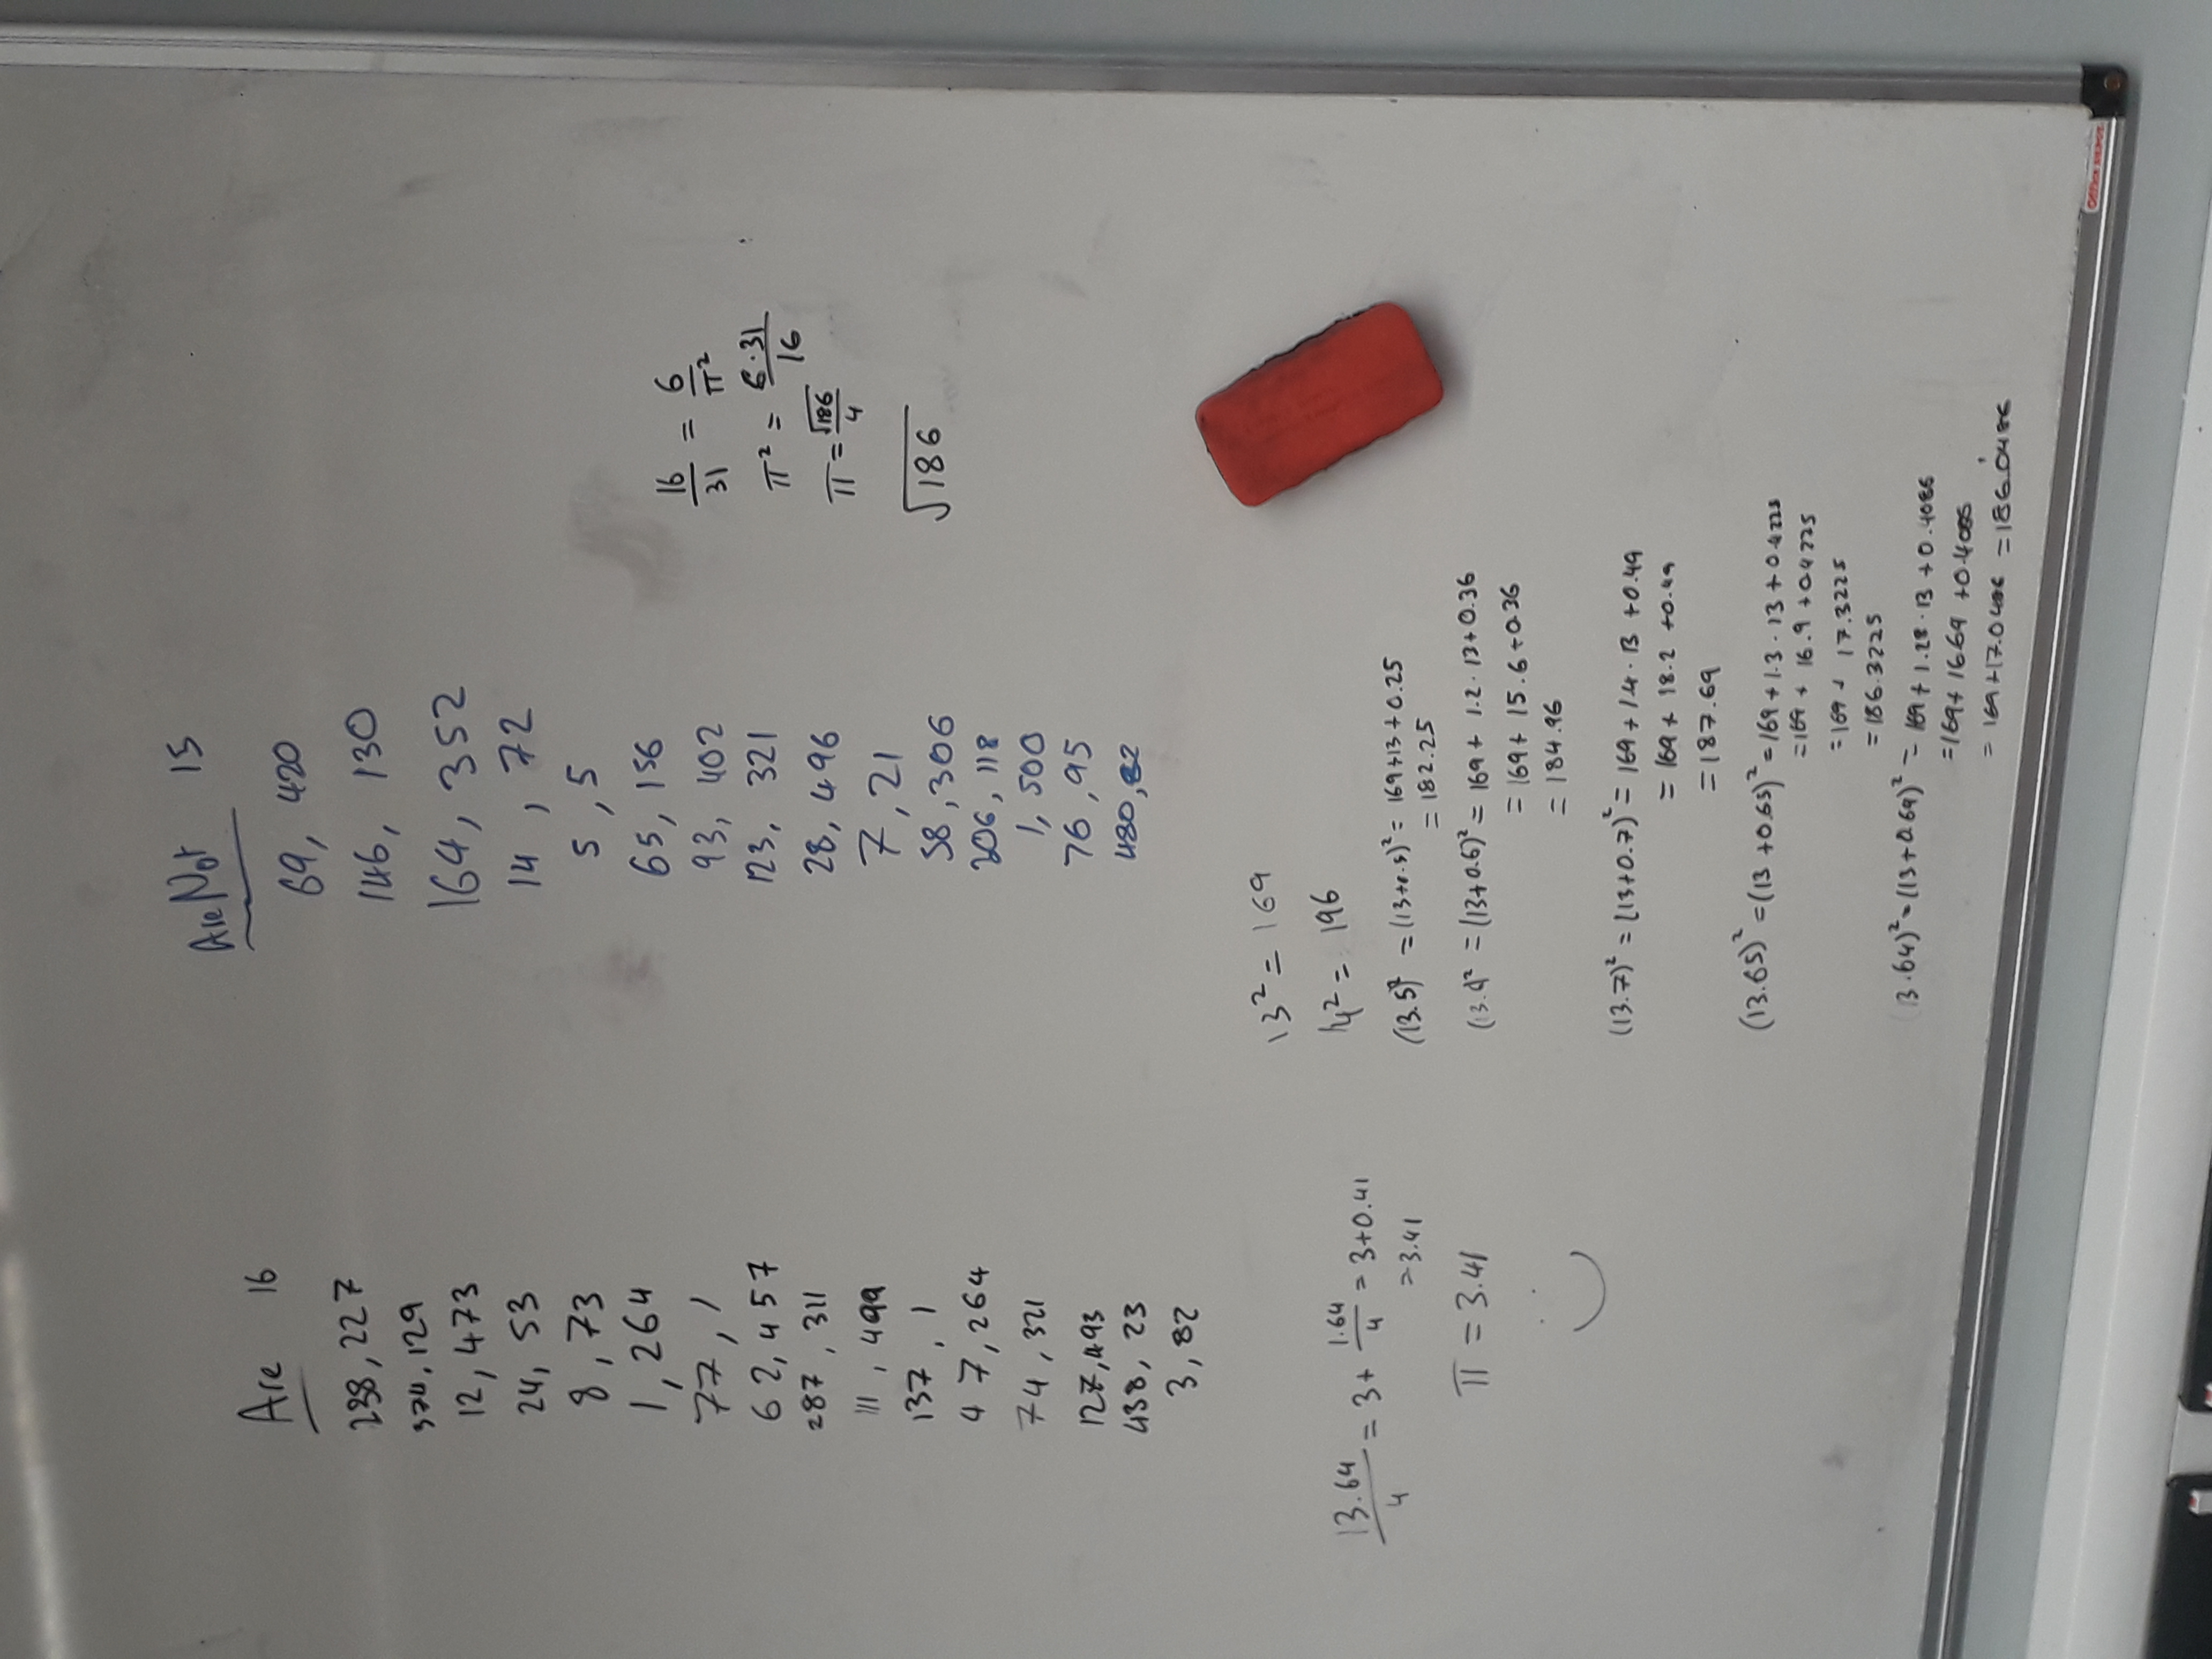 Are 16
238, 227
374, 129
12, 473
24, 53
8, 73
1, 264
77, 1
62, 457
287, 311
111, 499
137, 1
47, 264
74, 321
127, 493
438, 23
3, 82
Are Not 15
69, 420
146, 130
164, 352
14, 72
5, 5
65, 156
93, 402
123, 321
28, 496
7, 21
58, 306
206, 118
1, 500
76, 95
480, 82
16/31 = 6/π²
π² = 6·31/16
π = √186/4
√186
13.64/4 = 3 + 1.64/4 = 3+0.41
= 3.41
π = 3.41
13² = 169
14² = 196
(13.5)² = (13+0.5)² = 169+13+0.25
= 182.25
(13.6)² = (13+0.6)² = 169 + 1.2 · 13+0.36
= 169+ 15.6+0.36
= 184.96
(13.7)² = (13+0.7)² = 169 + 1.4 · 13 +0.49
= 169 + 18.2 +0.49
= 187.69
(13.65)² = (13 +0.65)² = 169 + 1.3 · 13 + 0.4225
= 169 + 16.9 +0.4225
= 169 + 17.3225
= 186.3225
3.64)² = (13+0.64)² = 169 + 1.28 · 13 + 0.4086
= 169+ 16.64 +0.4086
= 169+17.0486 = 186.0486
Office DEPOT